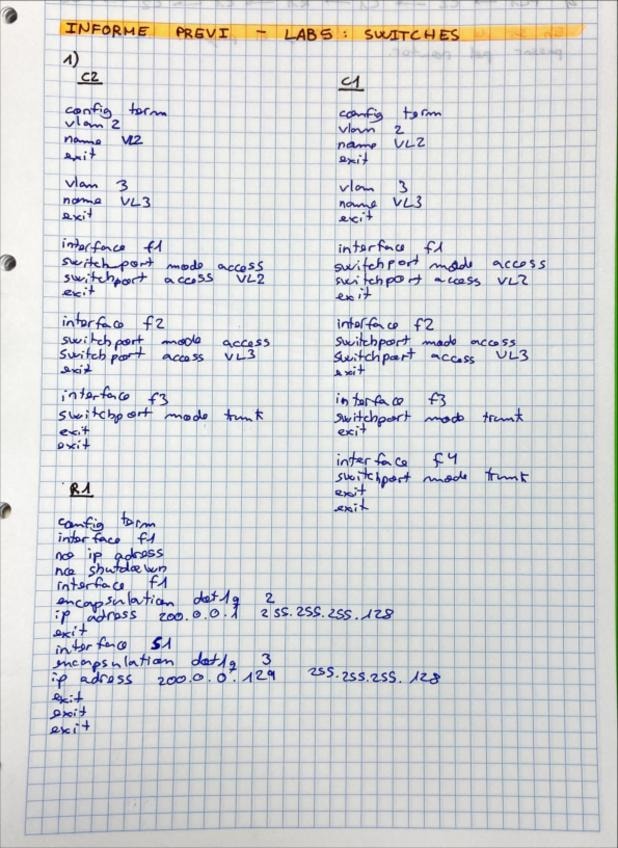 INFORME PREVI - LAB5: SWITCHES
1)
C2
config term
vlan 2
name VL2
exit
vlan 3
name VL3
exit
interface f1
switchport mode access
switchport access VL2
exit
interface f2
switchport mode access
switchport access VL3
exit
interface f3
switchport mode trunk
exit
exit
C1
config term
vlan 2
name VL2
exit
vlan 3
name VL3
exit
interface f1
switchport mode access
switchport access VL2
exit
interface f2
switchport mode access
switchport access VL3
exit
interface f3
switchport mode trunk
exit
interface f4
switchport mode trunk
exit
exit
R1
config term
interface f1
no ip adress
no shutdown
interface f1
encapsulation dot1q 2
ip adress 200.0.0.1 255.255.255.128
exit
interface S1
encapsulation dot1q 3
ip adress 200.0.0.129 255.255.255.128
exit
exit
exit